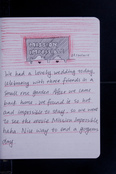 We had a lovely wedding today
celebrating with three friends in a
small rose garden. After we came
back home, we found it so hot
and impossible to stay. So we went
to see the movie Mission Impossible
haha. Nice way to end a gorgeous
day.